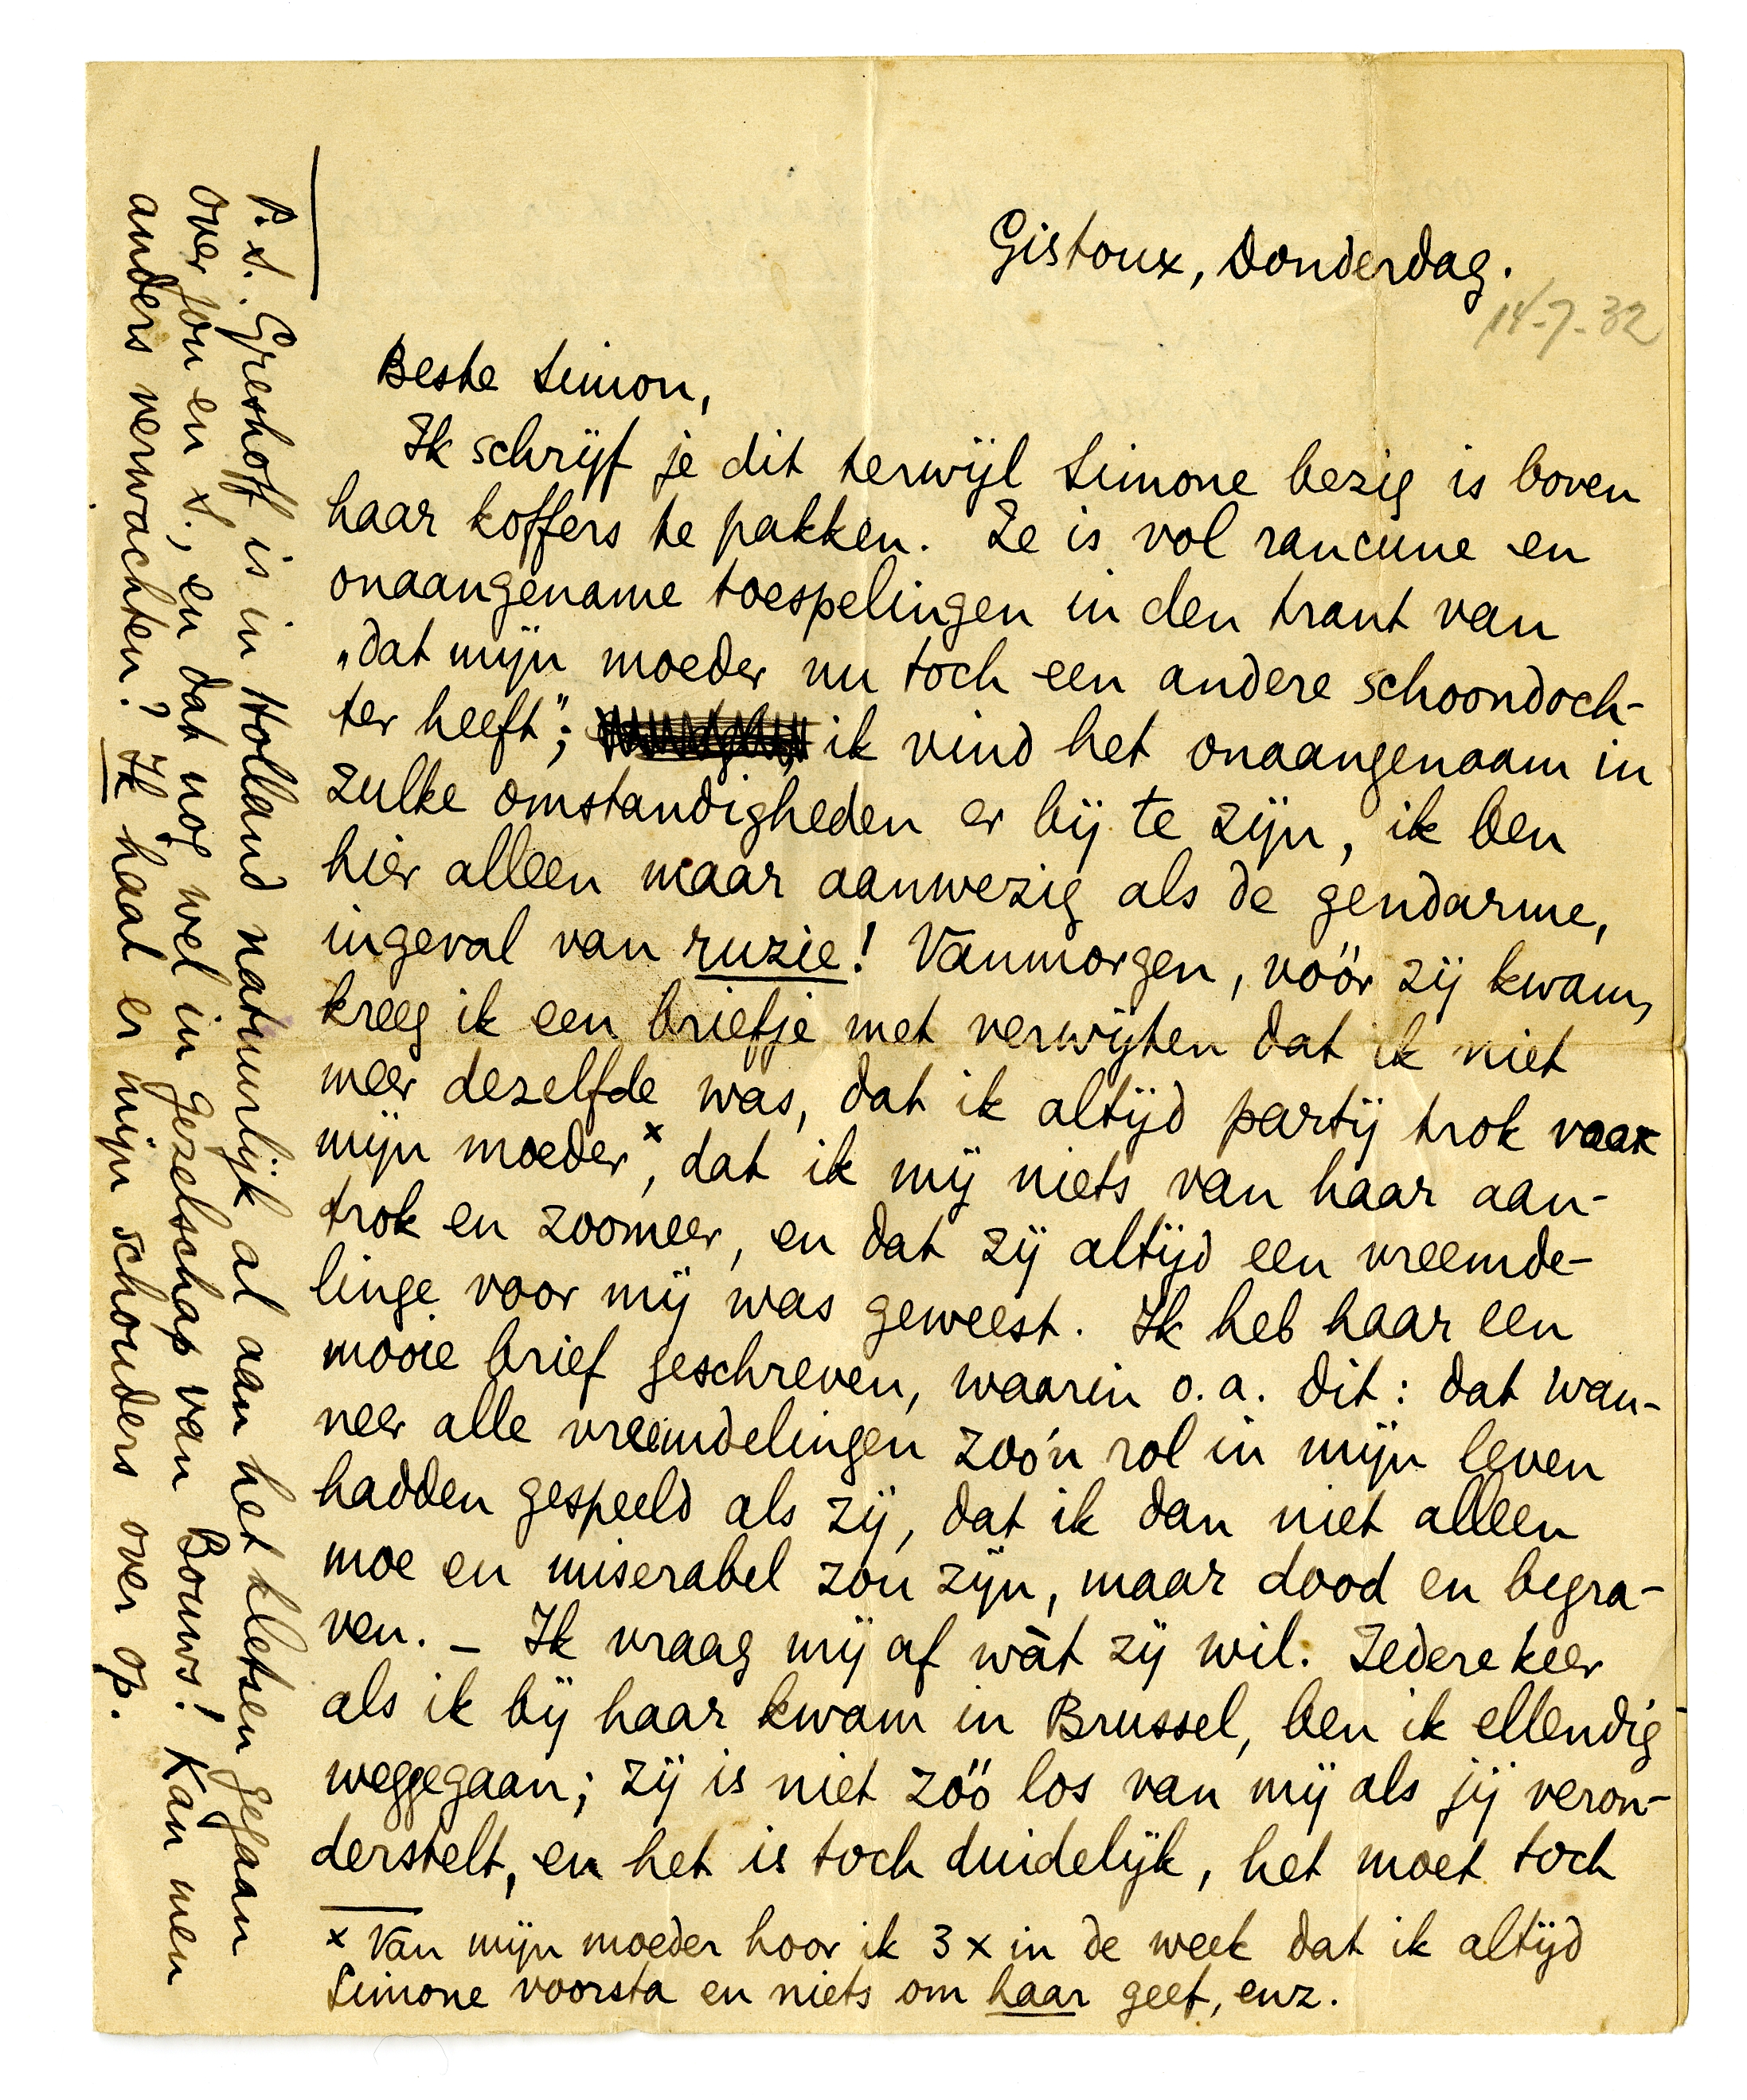 Gistoux, Donderdag.
14-7-32
Beste Simon,
Ik schrijf je dit terwijl Simone bezig is boven
haar koffers te pakken. Ze is vol rancune en
onaangename toespelingen in den trant van
„dat mijn moeder nu toch een andere schoondoch-
ter heeft"; ik vind het onaangenaam in
zulke omstandigheden er bij te zijn, ik ben
hier alleen maar aanwezig als de gendarme,
ingeval van ruzie! Vanmorgen, vóór zij kwam,
kreeg ik een briefje met verwijten dat ik niet
meer dezelfde was, dat ik altijd partij trok voor
mijn moeder x, dat ik mij niets van haar aan-
trok en zoomeer, en dat zij altijd een vreemde-
linge voor mij was geweest. Ik heb haar een
mooie brief geschreven, waarin o.a. dit: dat wan-
neer alle vreemdelingen zóó'n rol in mijn leven
hadden gespeeld als zij, dat ik dan niet alleen
moe en miserabel zou zijn, maar dood en begra-
ven. – Ik vraag mij af wàt zij wil. Iedere keer
als ik bij haar kwam in Brussel, ben ik ellendig
weggegaan; zij is niet zóó los van mij als jij veron-
derstelt, en het is toch duidelijk, het moet toch
x Van mijn moeder hoor ik 3 x in de week dat ik altijd
Simone voorsta en niets om haar geef, enz.
P.S. Greshoff is in Holland natuurlijk al aan het kletsen gegaan
over jou en S., en dat nog wel in gezelschap van Bouws! Kan men
anders verwachten? Ik haal er mijn schouders over op.